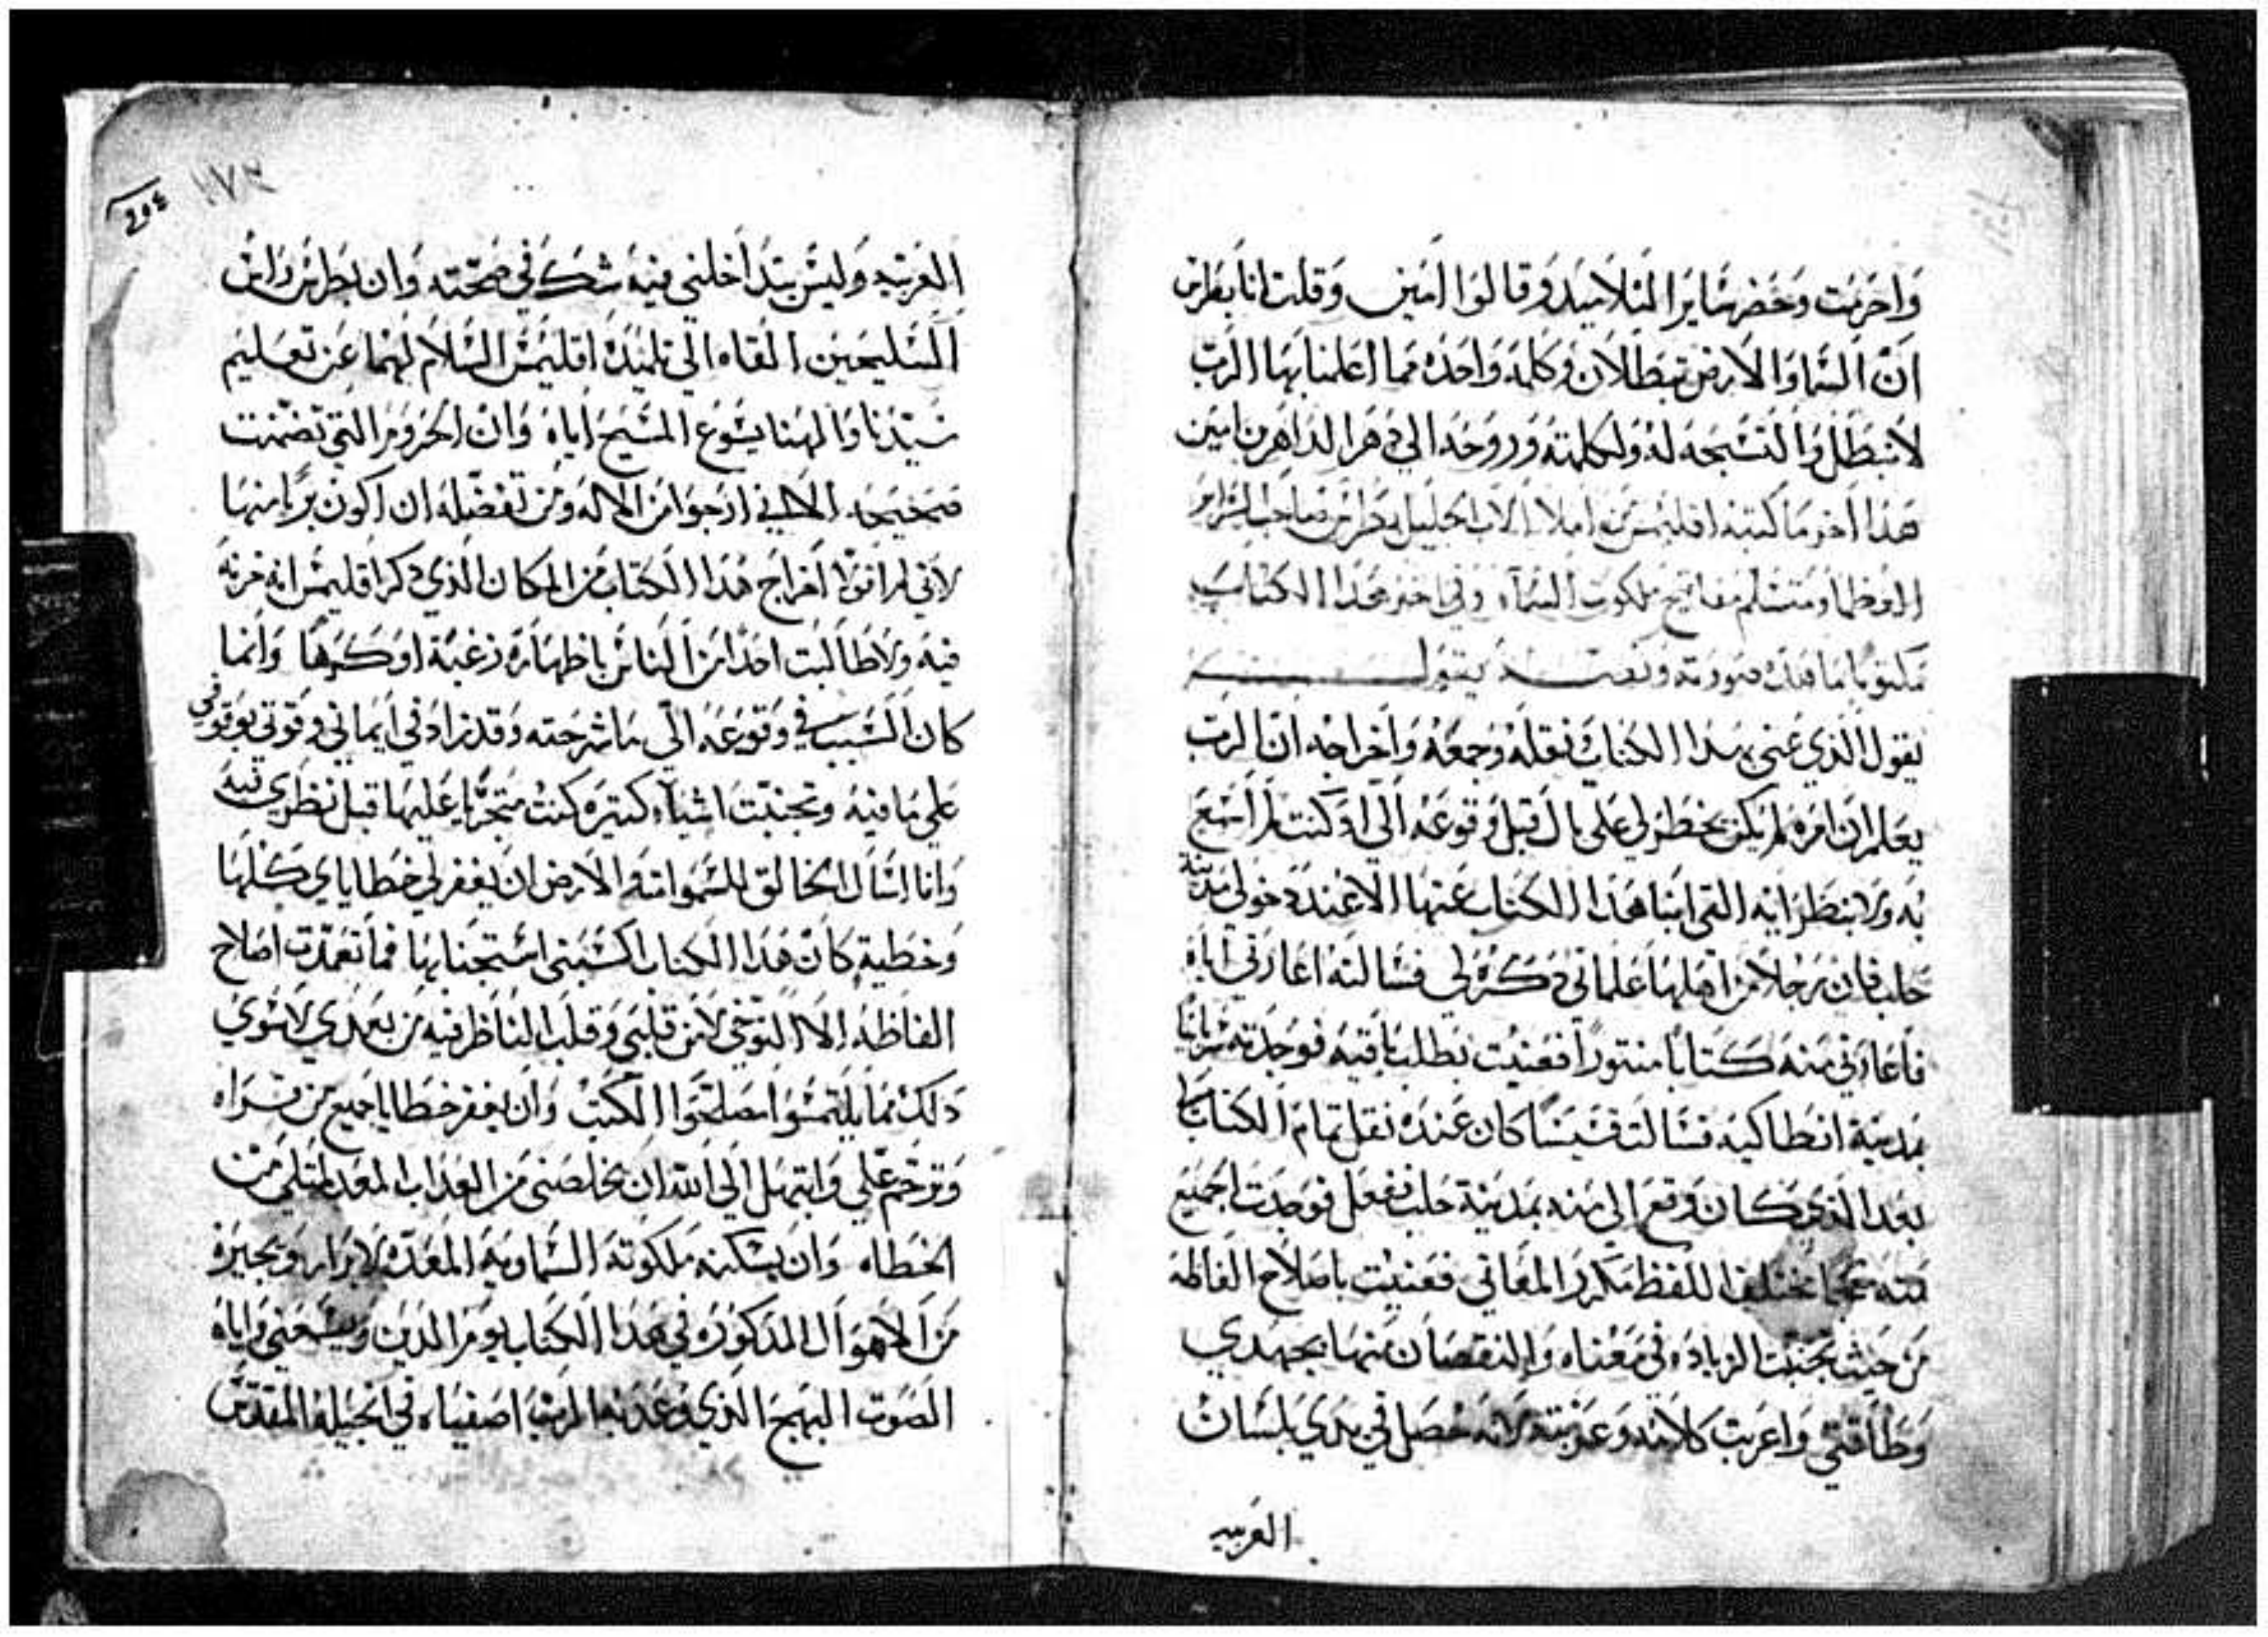 واخرنت وحضر سايرا لتلاميد وقالوا امين وقلت انا بطرس
ان السما والارض تبطلان وكلمه واحده مما اعلمنا بها الرب
لا تبطل والتسبحه له ولكلمته وروحه الي دهر الداهرين امين
هدا اخر ما كتبه اقليمس من املا الاب الجليل بطرس صاحب السراير
العظما ومتسلم مفاتيح ملكوت السماء وفي اخر هدا الكتاب
مكتوبا ما هده صورته ونصه يقول
يقول الذي عني بهدا الكتاب ونقله وجمعه واخراجه ان الرب
يعلم ان امره لم يكن يخطر لي على بال قبل وقوعه الي او كنت لم اسمع
به ولا بنظرايه التي ابنا هدا الكتاب عنها الا عند دخولي مدينة
حلب فان رجلا من اهلها علماني دكره لي فسالته اعارتي اياه
فاعارني منه كتابا منتورا فعنيت بطلب باقيه فوجدته سريانيا
بمدينة انطاكيه فسالت قسيسا كان عنده نقل تمام الكتاب
بعد الذي كان وقع الي منه بمدينة حلب ففعل فوجدت جميع
مختلف اللفظ مكرر المعاني فعنيت باصلاح الفاظه
من حيث تجنبت الزياده في معناه والنقصان منها بجهدي
وطاقتي واعربت كلامه وعربته لانه حصل في يدي بلسان
العربيه
٢٥٤
١٧٣
العربيه وليس يتداخلني فيه شك في صحته وان بطرس راس
السليحين القاه الي تلميده اقليمس السلام لهما عن تعليم
سيدنا والهنا يسوع المسيح اياه وان الحروم التي تضمنت
صحيحه الا اني ارجوا من الاله ومن تفضله ان اكون بريا منها
لاني لم اخراج هدا الكتاب من المكان الذي دكر اقليمس انه خزنه
فيه ولا طالبت احدا من الناس باظهاره رغبة او كرها وانما
كان السبب في وقوعه الي ما شرحته وقد زاد في ايماني وقوتي بوقوفي
علي ما فيه وتجنبت اشياء كتيره كنت متجريا عليها قبل نظري فيه
وانا اسال الخالق للسموات والارض ان يغفر لي خطاياي كلها
وخطية كان هدا الكتاب اكسبني استجنابها فما تعمدت اصلاح
الفاظه الا التوخي لامن قلبي وقلب الناظر فيه من بعدي لا سوي
دلك مما يلتمسوا مصلحوا الكتب وان يغفر خطايا جميع من قراه
وترحم علي وابتهل الي الله ان يخلصني من العذاب المعد لمتلي من
الخطاه وان يسكنه ملكوته السماويه المعده للابرار ويجيره
من الاهوال المدكوره في هدا الكتاب يوم الدين ويسمعني واياه
الصوت البهج الذي وعد به الرب اصفياه في انجيله المقدس